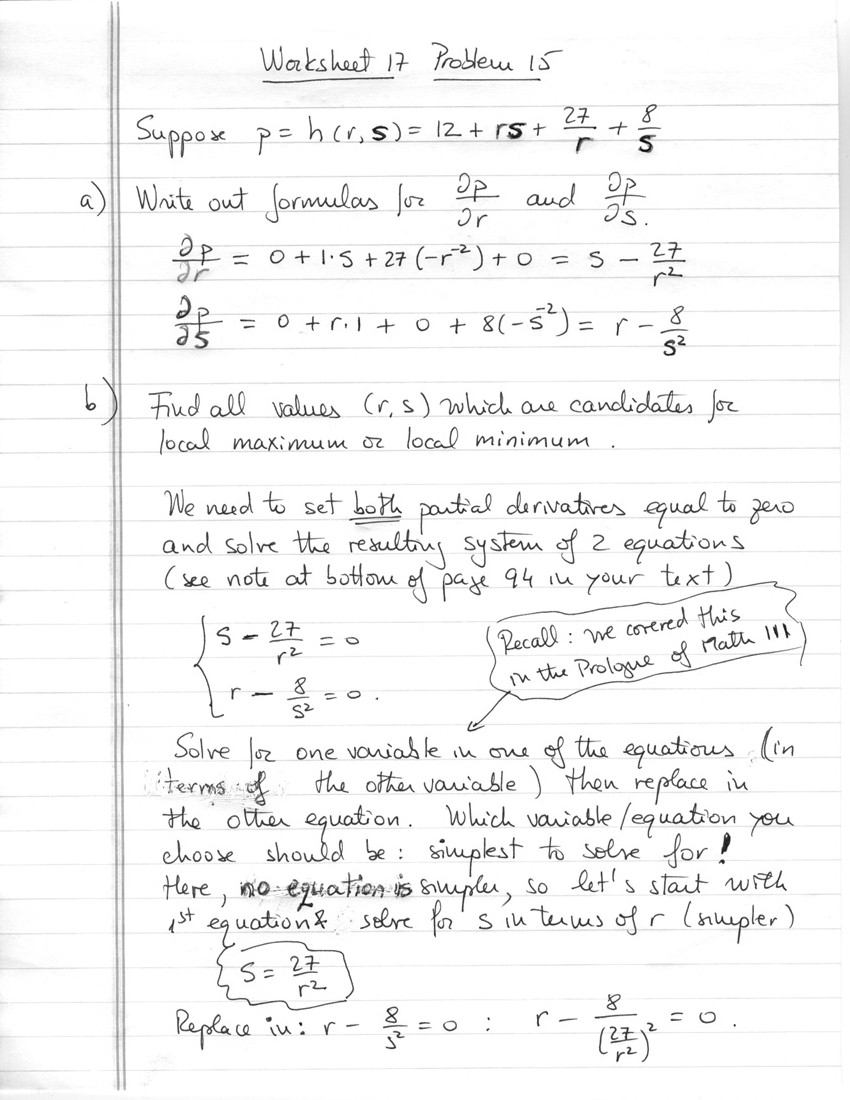 Worksheet 17 Problem 15
Suppose p = h(r, s) = 12 + rs + 27/r + 8/s
a) Write out formulas for ∂p/∂r and ∂p/∂s.
∂p/∂r = 0 + 1·s + 27(-r⁻²) + 0 = s - 27/r²
∂p/∂s = 0 + r·1 + 0 + 8(-s⁻²) = r - 8/s²
b) Find all values (r, s) which are candidates for
local maximum or local minimum.
We need to set both partial derivatives equal to zero
and solve the resulting system of 2 equations
(see note at bottom of page 94 in your text)
{ s - 27/r² = 0
r - 8/s² = 0.
Recall: we covered this
in the Prologue of Math 111
Solve for one variable in one of the equations (in
terms of the other variable) then replace in
the other equation. Which variable/equation you
choose should be: simplest to solve for!
Here, no equation is simpler, so let's start with
1st equation & solve for s in terms of r (simpler)
s = 27/r²
Replace in: r - 8/s² = 0 : r - 8/(27/r²)² = 0.